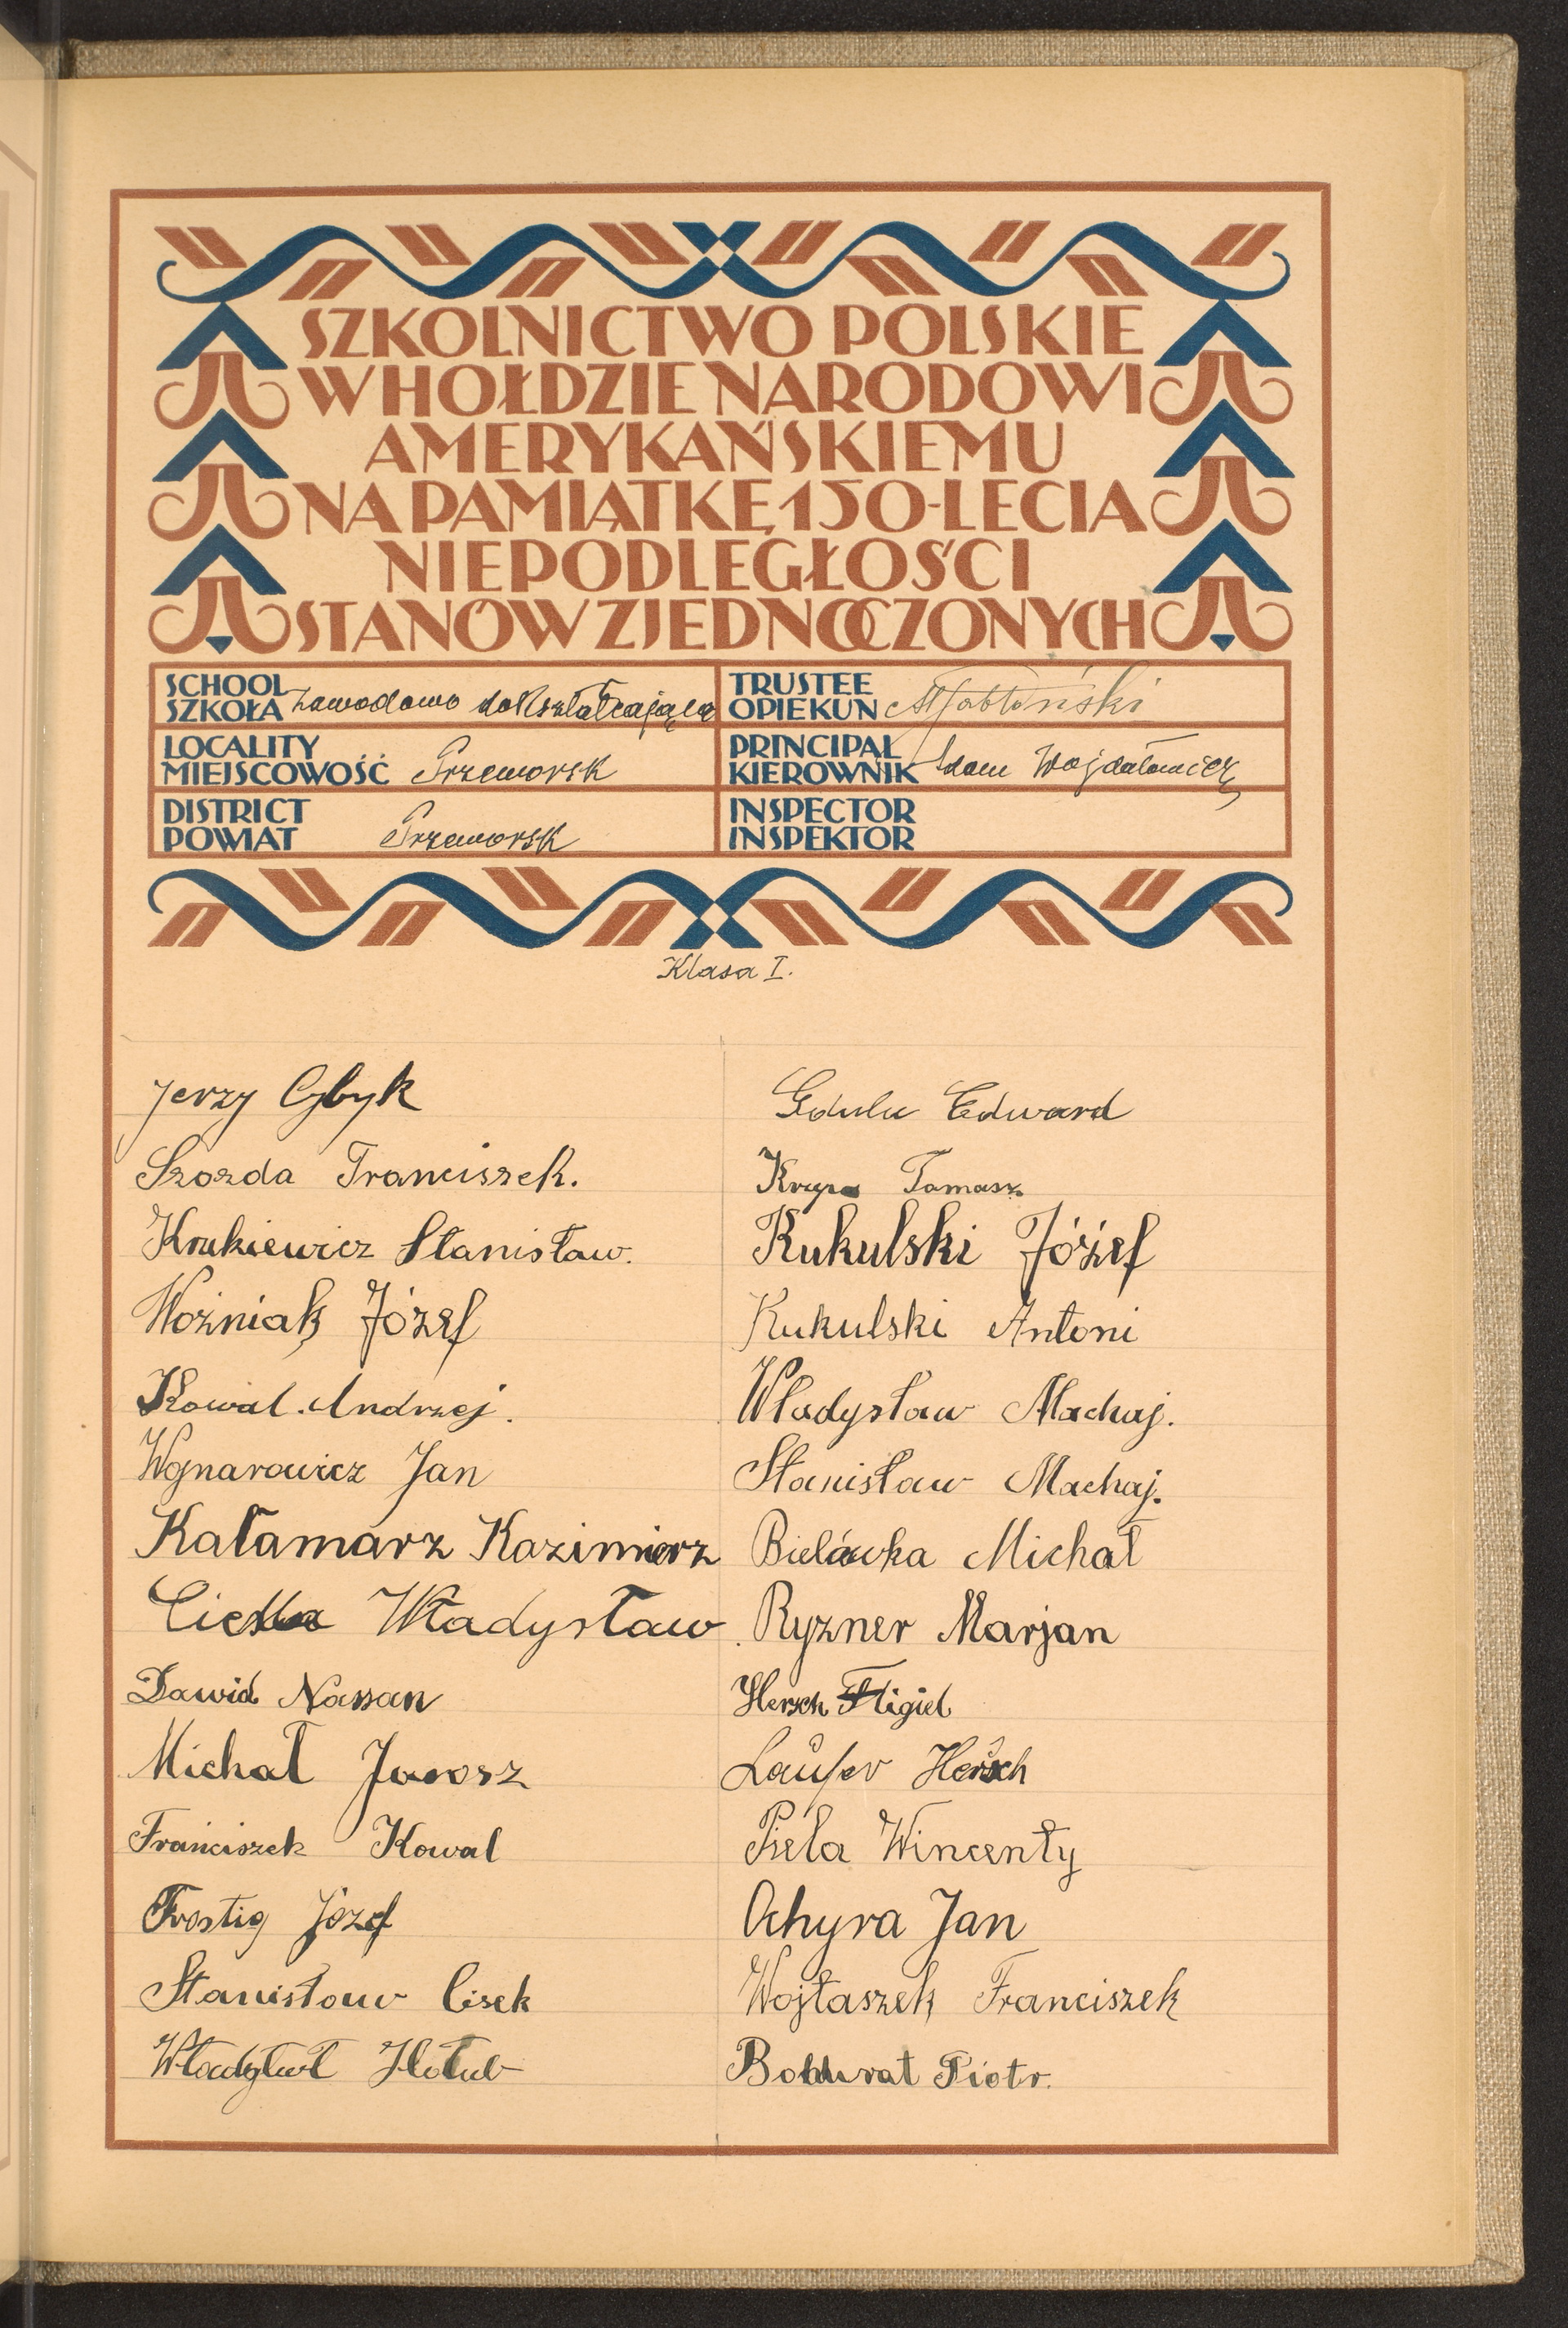 SZKOLNICTWO POLSKIE
W HOŁDZIE NARODOWI
AMERYKAŃSKIEMU
NA PAMIĄTKĘ 150-LECIA
NIEPODLEGŁOŚCI
STANÓW ZJEDNOCZONYCH
SCHOOL
SZKOŁA zawodowo dokształcająca
TRUSTEE
OPIEKUN Jabłoński
LOCALITY
MIEJSCOWOŚĆ Przeworsk
PRINCIPAL
KIEROWNIK Adam Wojdałowicz
DISTRICT
POWIAT Przeworsk
INSPECTOR
INSPEKTOR
Klasa I.
Jerzy Cybyk
Szozda Franciszek.
Krukiewicz Stanisław.
Woźniak Józef
Kowal Andrzej.
Wojnarowicz Jan
Kałamarz Kazimierz
Władysław
Dawid Nassan
Michał Jarosz
Franciszek Kowal
Frostig Józef
Stanisław Cisek
Hołub
Gdula Edward
Krupa Tomasz
Kukulski Józef
Kukulski Antoni
Władysław Machaj.
Stanisław Machaj.
Bielawka Michał
Ryzner Marjan
Hersch Fligiel
Laufer Hersch
Piela Wincenty
Ochyra Jan
Wojtaszek Franciszek
Piotr.